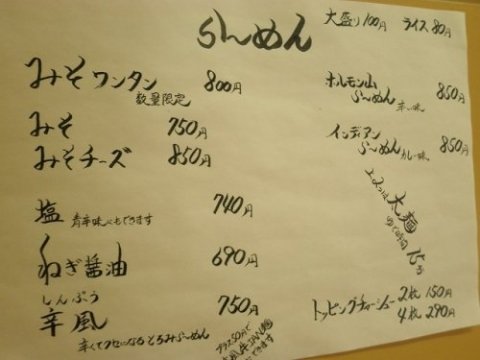 らーめん
大盛り100円 ライス80円
みそワンタン 800円
数量限定
みそ 750円
みそチーズ 850円
塩 740円
青辛味へもできます
ねぎ醤油 690円
しんぷう
辛風 750円
辛くてクセになるとろみらーめん
プラス50円で
できます
ホルモン山
らーめん 辛い味 850円
インディアン
らーめん カレー味 850円
太麺
15分
トッピングチャーシュー 2枚 150円
4枚 290円